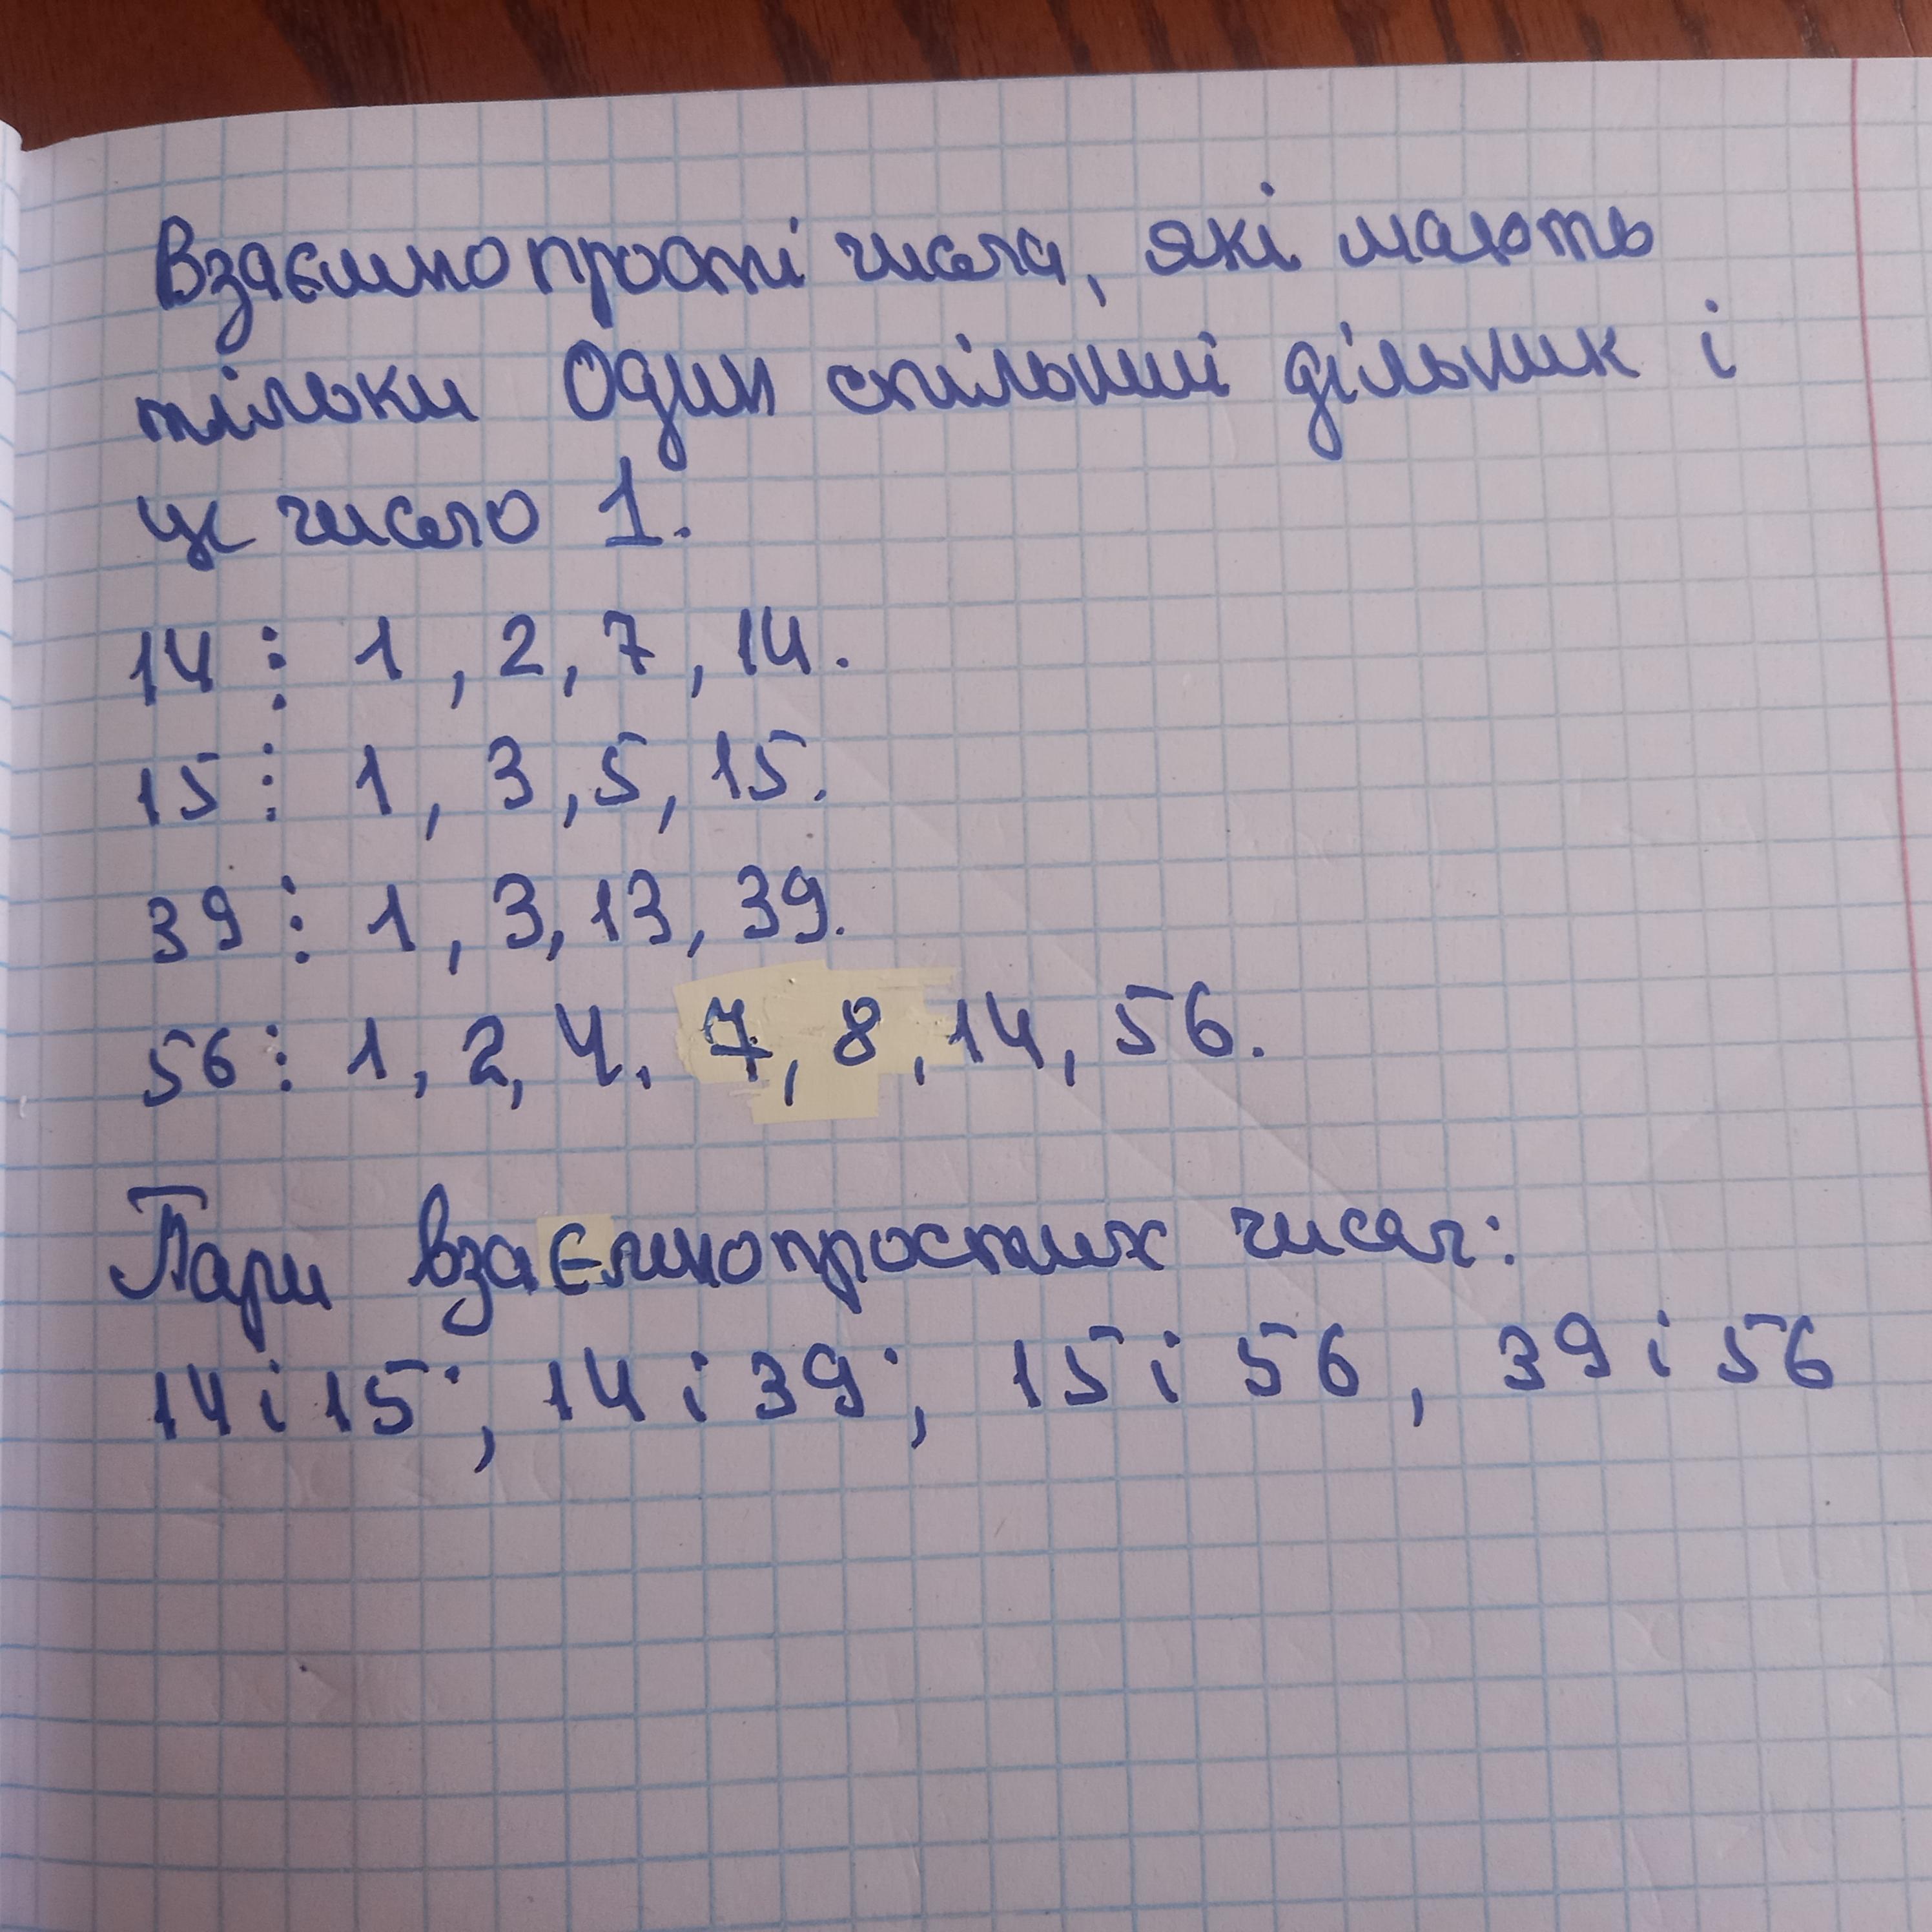 Взаємно прості числа, які мають
тільки Один спільний дільник і
це число 1.
14 ⋮ 1, 2, 7, 14.
15 ⋮ 1, 3, 5, 15.
39 ⋮ 1, 3, 13, 39.
56 ⋮ 1, 2, 4. 7, 8, 14, 56.
Пари взаємнопростих чисел:
14 і 15; 14 і 39; 15 і 56, 39 і 56